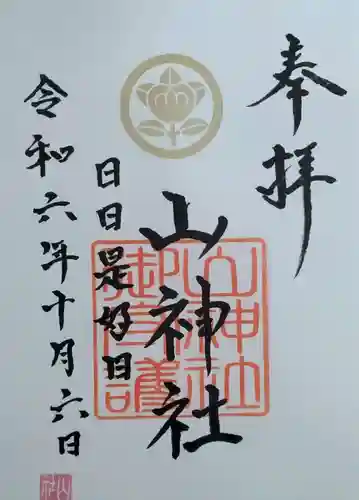 奉拝
山神社
日日是好日
令和六年十月六日